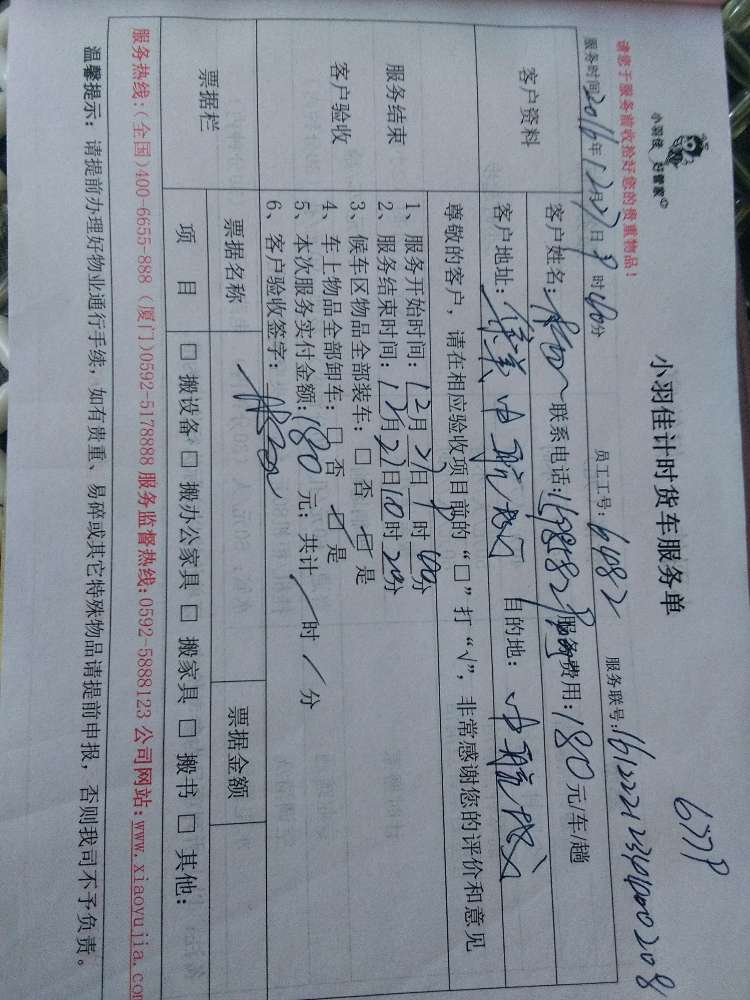 小羽佳 好管家
小羽佳计时货车服务单
677P
请您于服务前收拾好您的贵重物品！
服务时间 2016年12月27日9时40分 员工工号：6482 服务联号：
客户资料
客户姓名： 联系电话： 服务费用：180元/车/趟
客户地址：集美中航城 目的地：中航城
尊敬的客户，请在相应验收项目前的“□”打“√”，非常感谢您的评价和意见
服务结束
客户验收
1、服务开始时间：12月27日9时40分
2、服务结束时间：12月27日10时20分
3、候车区物品全部装车：□ 否 ☑ 是
4、车上物品全部卸车：□ 否 ☑ 是
5、本次服务实付金额：180元；共计/时/分
6、客户验收签字：
票据栏 票据名称 票据金额
项 目 □ 搬设备 □ 搬办公家具 □ 搬家具 □ 搬书 □ 其他：
服务热线：(全国)400-6655-888 (厦门)0592-5178888 服务监督热线：0592-5888123 公司网站：www.xiaoyujia.com
温馨提示：请提前办理好物业通行手续，如有贵重、易碎或其它特殊物品请提前申报，否则我司不予负责。